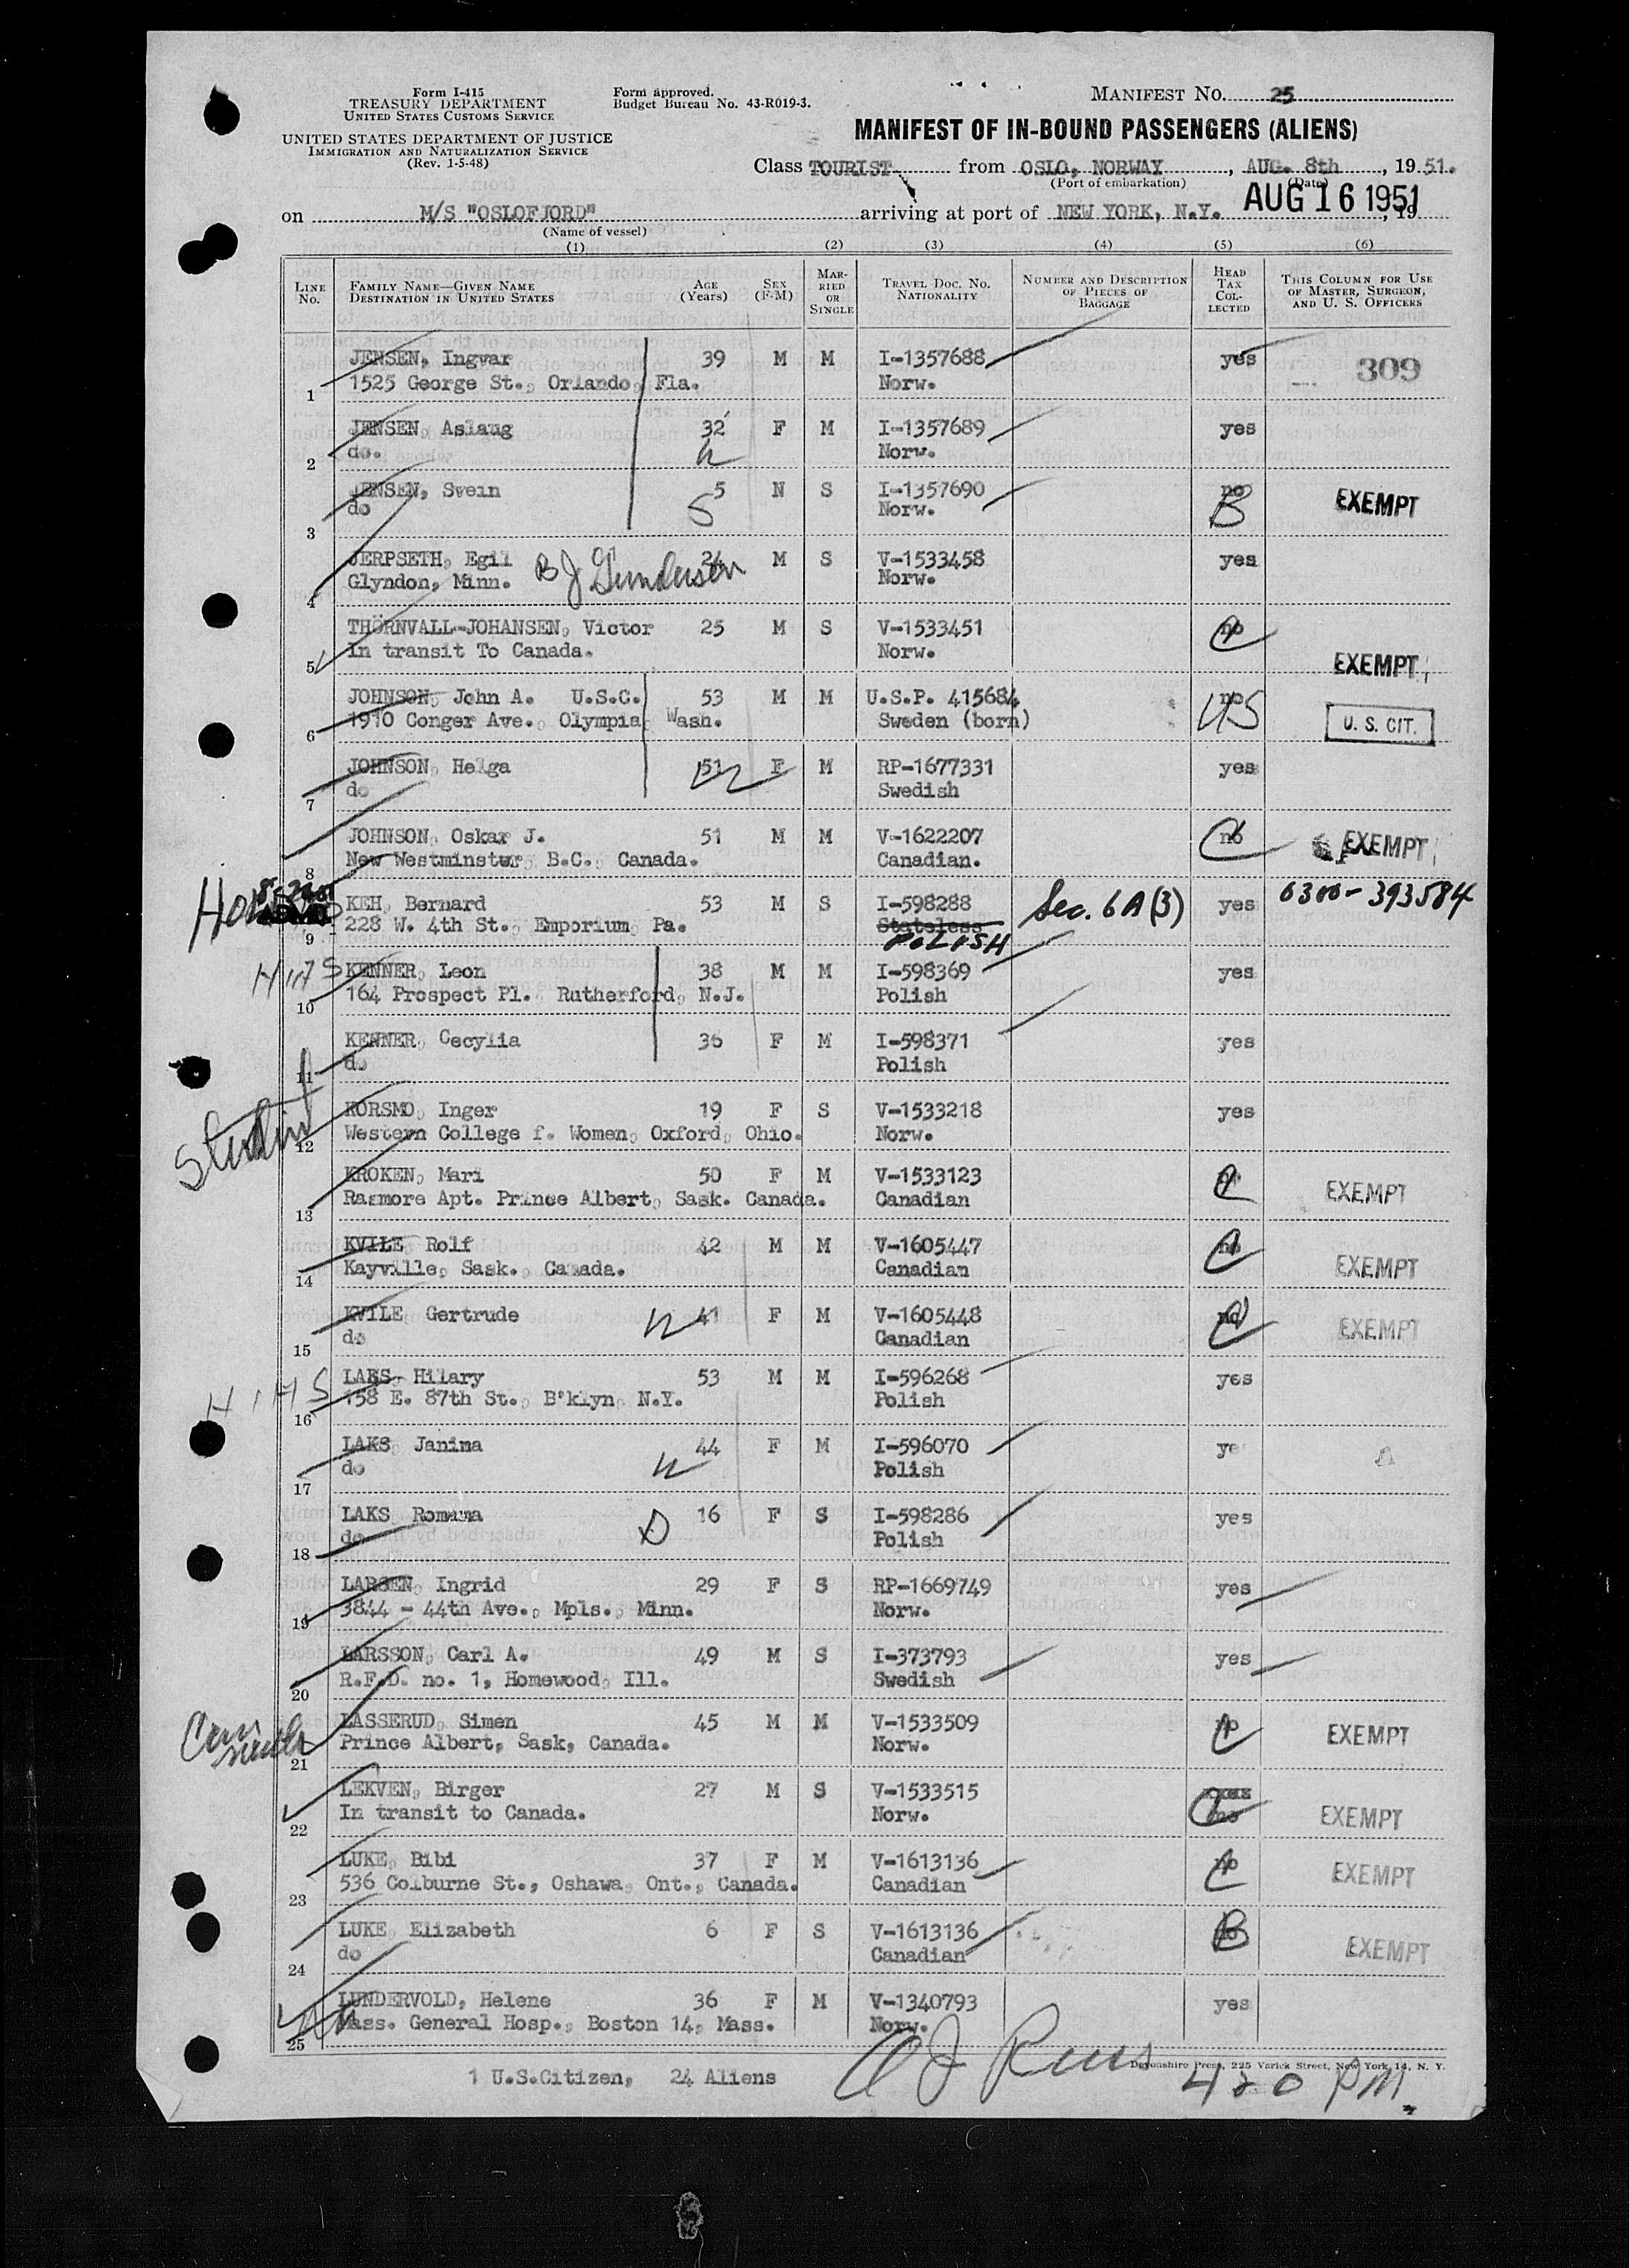 Form I-415
TREASURY DEPARTMENT
UNITED STATES CUSTOMS SERVICE
UNITED STATES DEPARTMENT OF JUSTICE
IMMIGRATION AND NATURALIZATION SERVICE
(Rev. 1-5-48)
Form approved.
Budget Bureau No. 43-R019-3.
MANIFEST NO. 25
MANIFEST OF IN-BOUND PASSENGERS (ALIENS)
Class TOURIST from OSLO, NORWAY, AUG. 8th, 1951.
(Port of embarkation) (Date)
on M/S "OSLOFJORD" arriving at port of NEW YORK, N.Y. AUG 16 1951, 19
(Name of vessel)
(1) (2) (3) (4) (5) (6)
LINE No. FAMILY NAME—GIVEN NAME DESTINATION IN UNITED STATES AGE (Years) SEX (F-M) MARRIED OR SINGLE TRAVEL DOC. NO. NATIONALITY NUMBER AND DESCRIPTION OF PIECES OF BAGGAGE HEAD TAX COLLECTED THIS COLUMN FOR USE OF MASTER, SURGEON, AND U. S. OFFICERS
JENSEN, Ingvar 39 M M I-1357688 yes 309
1 1525 George St., Orlando, Fla. Norw.
JENSEN, Aslaug 32 F M I-1357689 yes
2 do. W Norw.
JENSEN, Svein 5 N S I-1357690 no EXEMPT
3 do S Norw. B
JERPSETH, Egil 24 M S V-1533458 yes
4 Glyndon, Minn. BJ Gunderson Norw.
THÖRNVALL-JOHANSEN, Victor 25 M S V-1533451 no
5 In transit To Canada. Norw. EXEMPT
JOHNSON, John A. U.S.C. 53 M M U.S.P. 415684 no US
6 1910 Conger Ave., Olympia, Wash. Sweden (born) U. S. CIT.
JOHNSON, Helga 51 W F M RP-1677331 yes
7 do Swedish
JOHNSON, Oskar J. 51 M M V-1622207 no C EXEMPT
8 New Westminster, B.C., Canada. Canadian.
KEH, Bernard 53 M S I-598288 Sec. 6A(3) yes 0300-393584
9 228 W. 4th St., Emporium, Pa. Stateless
POLISH
HIAS KENNER, Leon 38 M M I-598369 yes
10 164 Prospect Pl., Rutherford, N.J. Polish
KENNER, Cecylia 36 F M I-598371 yes
11 do Polish
Student KORSMO, Inger 19 F S V-1533218 yes
12 Western College f. Women, Oxford, Ohio. Norw.
KROKEN, Mari 50 F M V-1533123 C EXEMPT
13 Rasmore Apt. Prince Albert, Sask. Canada. Canadian
KVILE Rolf 42 M M V-1605447 no C EXEMPT
14 Kayville, Sask., Canada. Canadian
KVILE Gertrude W 41 F M V-1605448 no C EXEMPT
15 do Canadian
HIAS LAKS, Hilary 53 M M I-596268 yes
16 158 E. 87th St., B'klyn, N.Y. Polish
LAKS, Janina 44 F M I-596070 ye
17 do W Polish
LAKS Romana D 16 F S I-598286 yes
18 do Polish
LARSEN, Ingrid 29 F S RP-1669749 yes
19 3844 - 44th Ave., Mpls., Minn. Norw.
LARSSON, Carl A. 49 M S I-373793 yes
20 R.F.D. no. 1, Homewood, Ill. Swedish
LASSERUD, Simen 45 M M V-1533509 no C EXEMPT
21 Prince Albert, Sask, Canada. Norw.
LEKVEN, Birger 27 M S V-1533515
22 In transit to Canada. Norw. no C EXEMPT
LUKE, Bibi 37 F M V-1613136 no C EXEMPT
23 536 Colburne St., Oshawa, Ont., Canada. Canadian
LUKE, Elizabeth 6 F S V-1613136 no B EXEMPT
24 do Canadian
LUNDERVOLD, Helene 36 F M V-1340793 yes
25 Mass. General Hosp., Boston 14, Mass. Norw.
Devonshire Press, 225 Varick Street, New York, 14, N. Y.
1 U.S.Citizen, 24 Aliens
420 PM